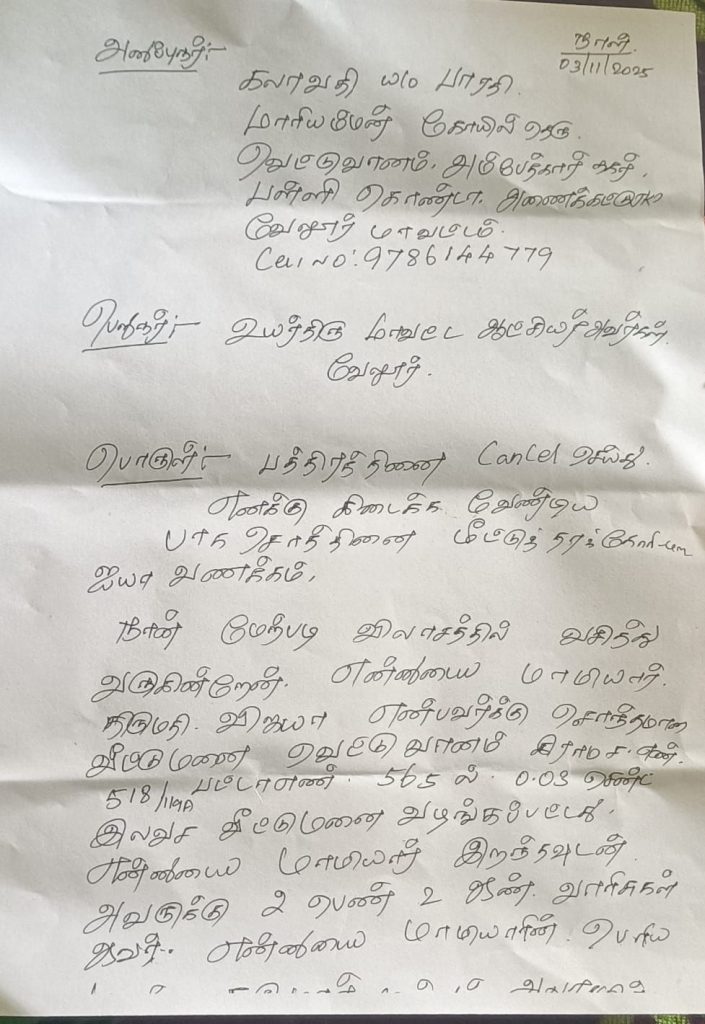 அனுப்புநர்:-
நாள்.
03/11/2025
கலாவதி W/o பாரதி.
மாரியம்மன் கோயில் தெரு.
வெட்டுவானம், அம்பேத்கார் நகர்,
பள்ளி கொண்டா, அணைக்கட்டு(TK)
வேலூர் மாவட்டம்.
Cell NO: 9786144779
பெறுநர்:- உயர்திரு மாவட்ட ஆட்சியர் அவர்கள்,
வேலூர்.
பொருள்:- பத்திரத்தினை Cancel செய்து.
எனக்கு கிடைக்க வேண்டிய
பாக சொத்தினை மீட்டுத் தரக்கோரி
ஐயா வணக்கம்,
நான் மேற்படி விலாசத்தில் வசித்து
வருகின்றேன். என்னுடைய மாமியார்.
திருமதி. விஜயா என்பவர்க்கு சொந்தமான
வீட்டுமனை வெட்டுவானம் கிராம ச.எண்.
518/ பட்டாஎண். 565 ல் 0.03 சென்ட்
இலவச வீட்டுமனை வழங்கப்பட்டது.
என்னுடைய மாமியார் இறந்தவுடன்
அவருக்கு 2 பெண் 2 ஆண். வாரிசுகள்
ஆவர். என்னுடைய மாமியாரின். பெரிய